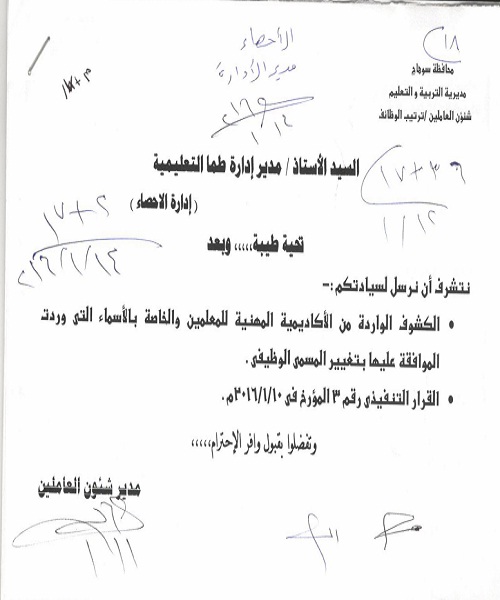 ١٨
الأحصاء
مدير الأدارة
محافظة سوهاج
مديرية التربية و التعليم
شئون العاملين /ترتيب الوظائف
السيد الأستاذ / مدير إدارة طما التعليمية
( إدارة الاحصاء )
١٧ + ٣٦
١/١٢
١٧ + ٢
٢٠١٦/١/١٣
تحية طيبة،،،،، وبعد
نتشرف أن نرسل لسيادتكم :-
• الكشوف الواردة من الأكاديمية المهنية للمعلمين والخاصة بالأسماء التى وردت
الموافقة عليها بتغيير المسمى الوظيفى .
• القرار التنفيذى رقم ٣ المؤرخ فى ٢٠١٦/١/١٠م.
وتفضلوا بقبول وافر الإحترام،،،،،
مدير شئون العاملين